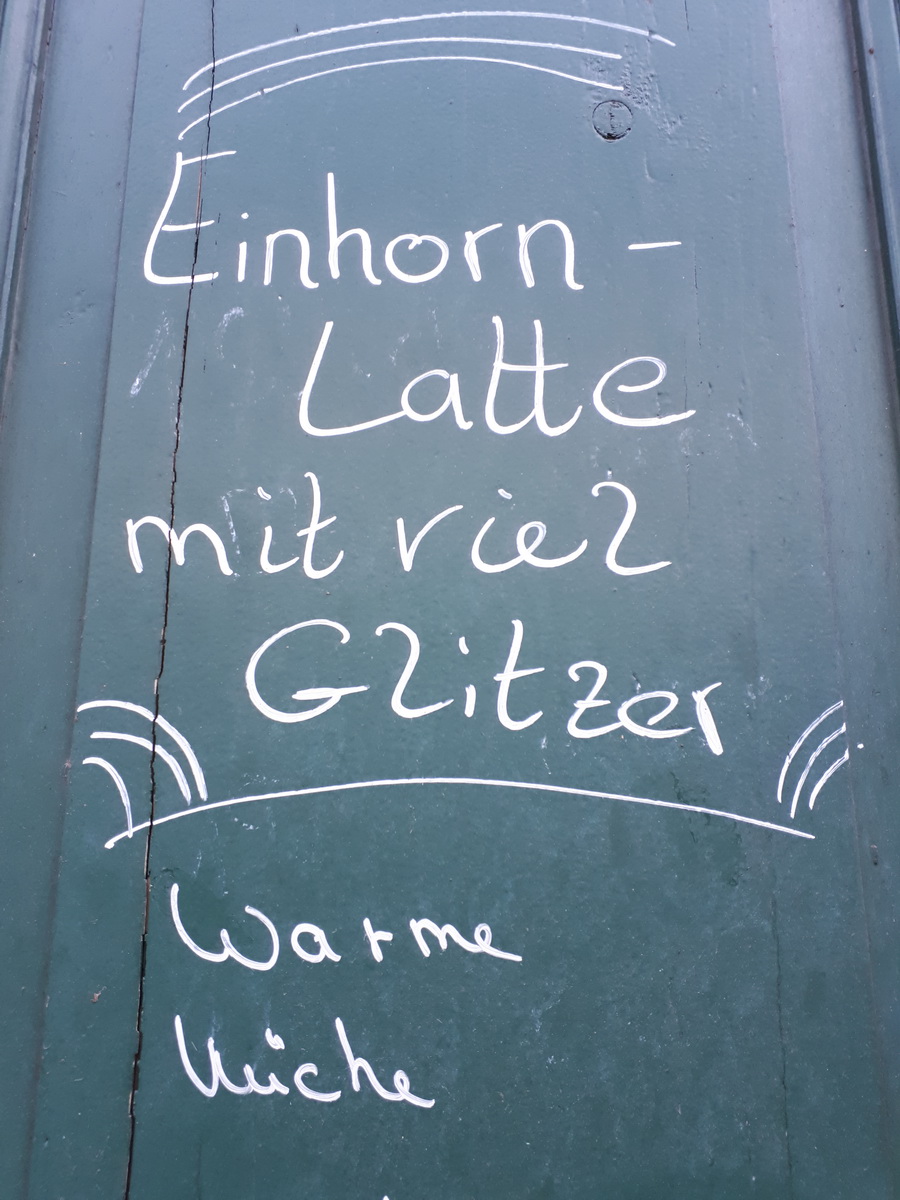 Einhorn -
Latte
mit viel
Glitzer
Warme
Küche